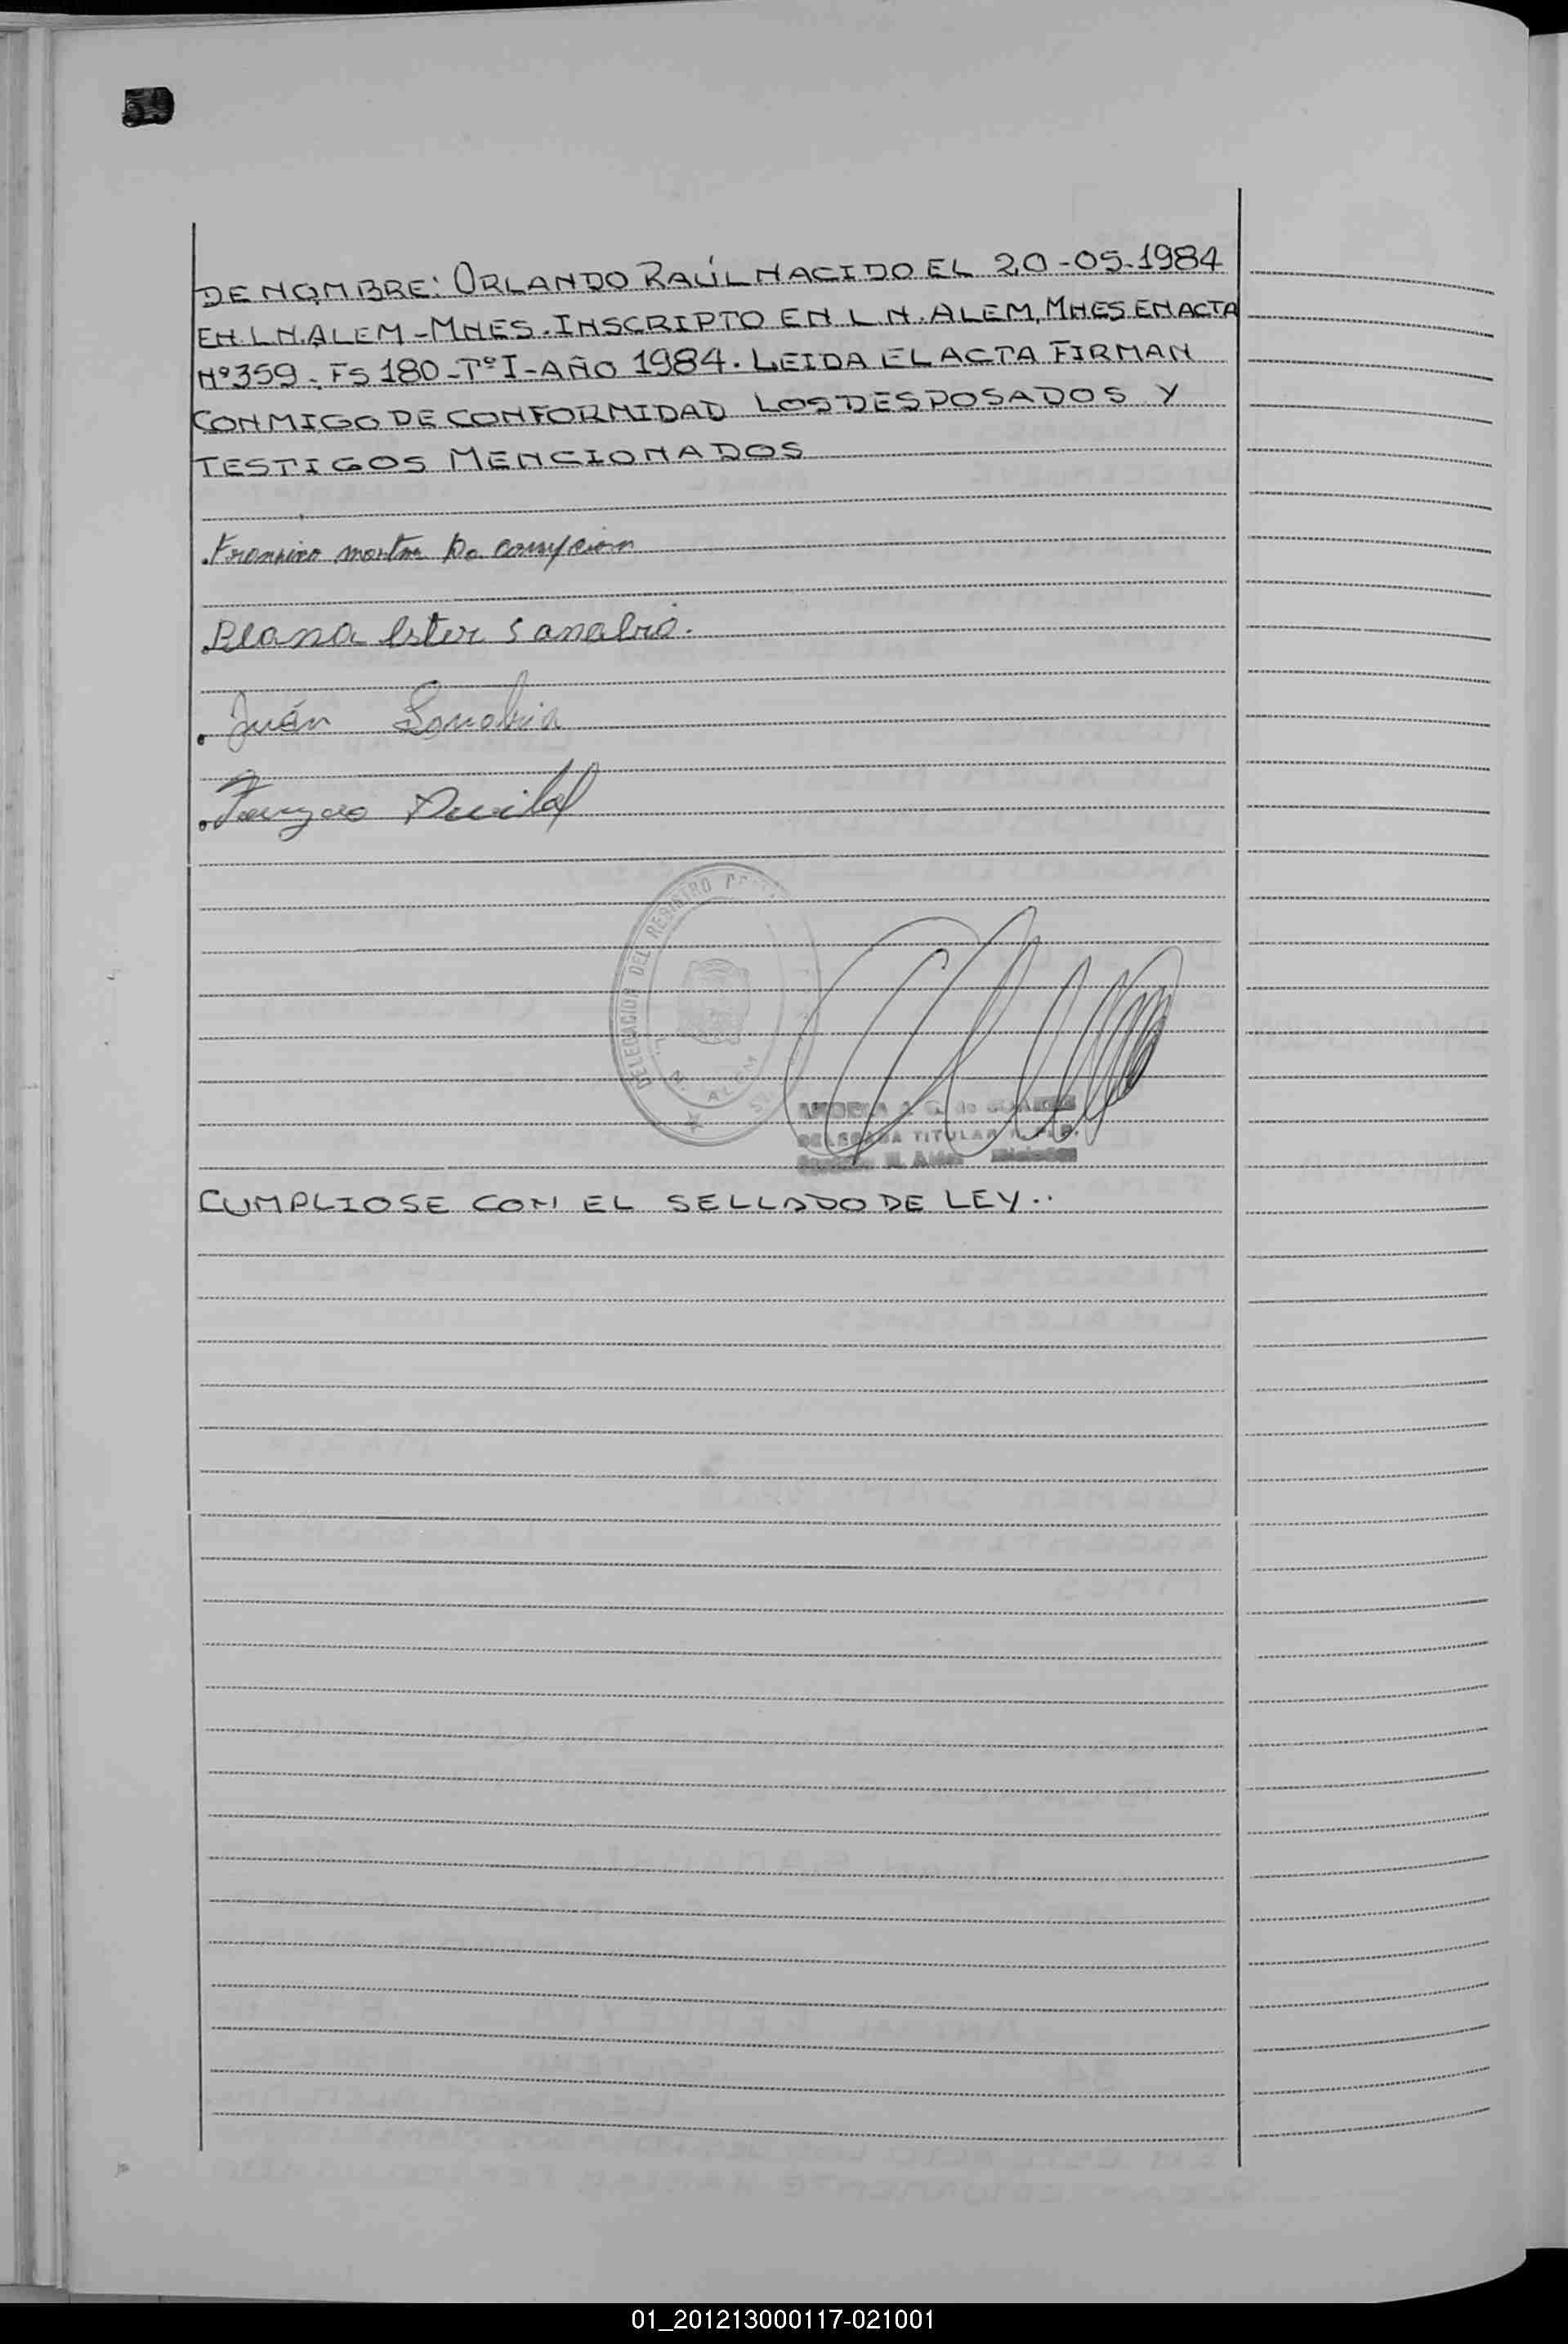 DE NOMBRE: ORLANDO RAÚL NACIDO EL 20-05-1984
EN L.N.ALEM-MNES.INSCRIPTO EN L.N.ALEM, MNES EN ACTA
Nº359-FS 180-TºI-AÑO 1984. LEIDA EL ACTA FIRMAN
CONMIGO DE CONFORMIDAD LOS DESPOSADOS Y
TESTIGOS MENCIONADOS
Blana Ester Sanabria.
Juán Sanabria
DELEGACION DEL REGISTRO
L. N. ALEM
DELEGADA TITULAR
CUMPLIOSE CON EL SELLADO DE LEY..
01_201213000117-021001